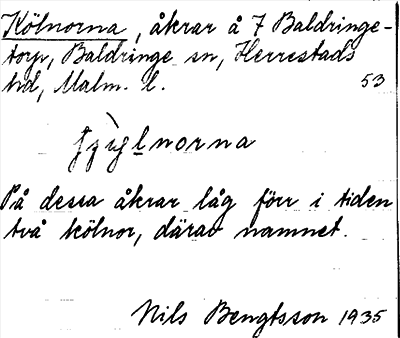 Kölnorna, åkrar å 7 Baldringe-
torp, Baldringe sn, Herrestads
hd, Malm. l. 53
På dessa åkrar låg förr i tiden
två kölnor, därav namnet.
Nils Bengtsson 1935